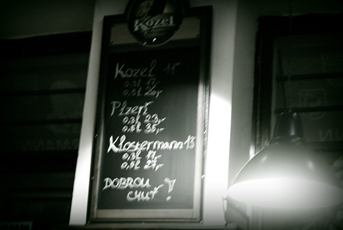 Kozel
Kozel 11
0,5l
Plzeň
0,3l 23,-
0,5l 35,-
Klosterman 13
0,3l
0,5l
DOBROU
CHUŤ!